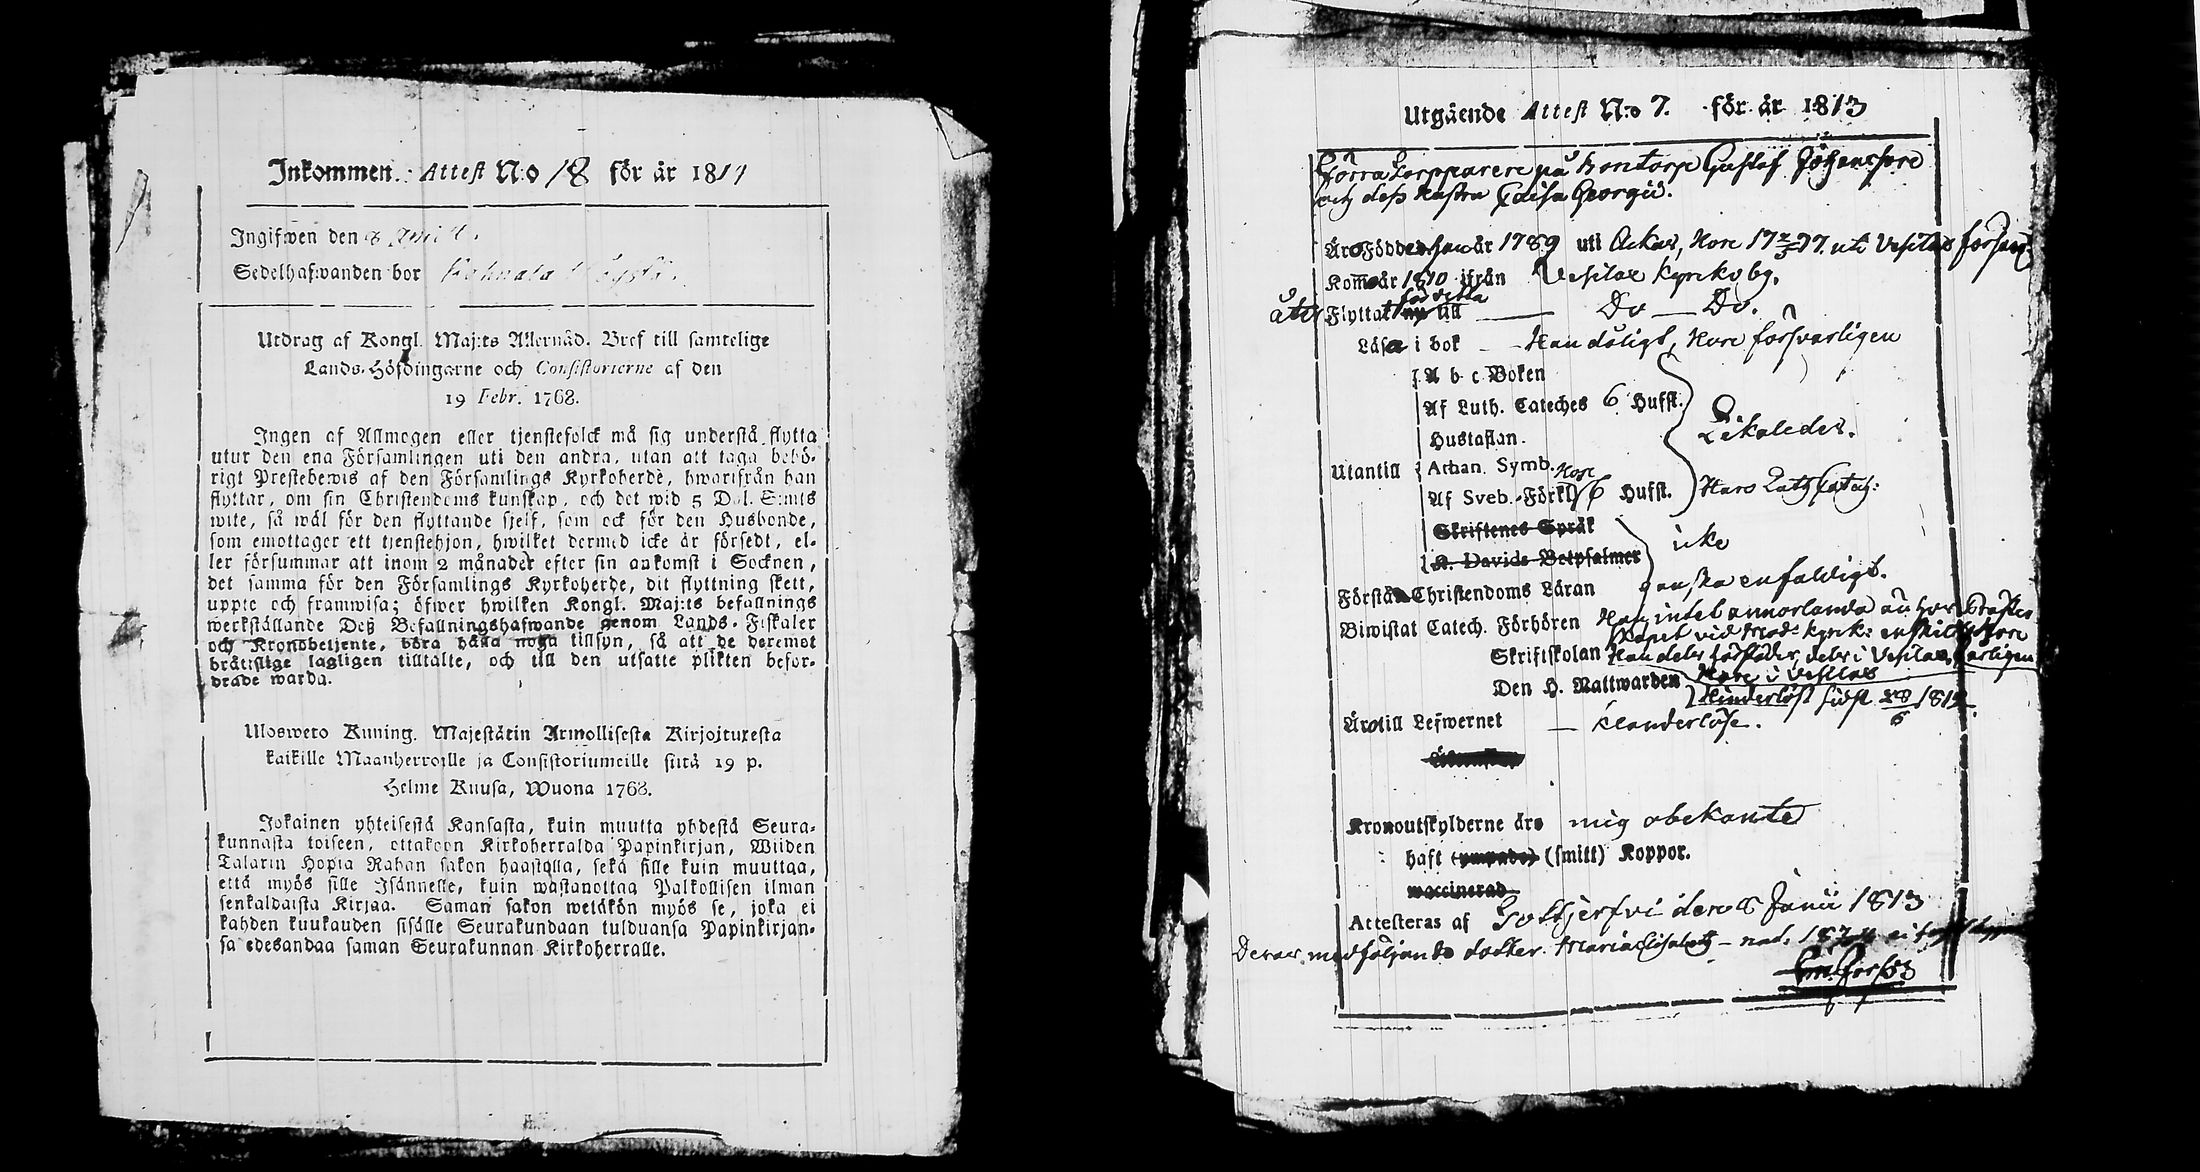 Inkommen. Attest N:o 18 för år 181
Ingifwen den 8
Sedelhafwanden bor
Utdrag af Kongl. Maj:ts Allernåd. Bref till samtelige
Lands-Höfdingarne och Consistorierne af den
19 Febr. 1768.
Ingen af Allmogen eller tjenstefolck må sig understå flytta
utur den ena Församlingen uti den andra, utan att taga behö-
rigt Prestebewis af den Församlings Kyrkoherde, hwarifrån han
flyttar, om sin Christendoms kunskap, och det wid 5 Dal. S:mts
wite, så wäl för den flyttande sjelf, som ock för den Husbonde,
som emottager ett tjenstehjon, hwilket dermed icke är försedt, el-
ler försummar att inom 2 månader efter sin ankomst i Socknen,
det samma för den Församlings Kyrkoherde, dit flyttning skett,
uppte och framwisa; öfwer hwilken Kongl. Maj:ts befallnings
werkställande Deß Befallningshafwande genom Lands-Fiskaler
och Kronobetjente, böra hålla noga tillsyn, så att de deremot
bråttslige lagligen tilltalte, och till den utsatte plikten befor-
drade warda.
Ulosweto Kuning. Majestätin Armollisesta Kirjoituxesta
kaikille Maanherroille ja Consistoriumeille siitä 19 p.
Helme Kuusa, Wuona 1768.
Jokainen yhteisestä Kansasta, kuin muutta yhdestä Seura-
kunnasta toiseen, ottakoon Kirkoherralda Papinkirjan, Wiiden
Talarin Hopia Rahan sakon haastolla, sekä sille kuin muuttaa,
että myös sille Isännelle, kuin wastanottaa Palkollisen ilman
senkaldaista Kirjaa. Saman sakon wetäkön myös se, joka ei
kahden kuukauden sisälle Seurakundaan tulduansa Papinkirjan-
sa edesandaa saman Seurakunnan Kirkoherralle.
Utgående Attest N:o 7. för år 1813
Förra Torpparen på Gustaf Johansson
och dess Hustru Caisa Georgii.
Äro Födde år 1789 uti Ackas, Hon 17 77 uti Vesilax
Kom år 1810 ifrån Vesilax Kyrkoby.
åter Flyttat till — Do — Do.
Läsa i bok — Han dåligt, Hon försvarligen
A b c Boken
Af Luth. Cateches 6 Hufst.
Hustaflan. Likaledes.
Utantill Athan. Symb.
Af Sveb. Förkl. Hon 6 Hufst. Hans Catech:
Skriftenes Språk
K. Davids Botpsalmer icke
Förstå Christendoms Läran ganska enfaldigt.
Biwistat Catech. Förhören Han intet annorlunda än
Skriftskolan Han dels dels i Vesilax,
Den H. Nattwarden Hon i Vesilax
sidst 28/6 1812.
Äro till Lefwernet — klanderlöse.
Kronoutskylderne äro mig obekante
haft (ympade) (smitt) Koppor.
waccinerad
Attesteras af den 8 Junii 1813
Deras medföljande dotter Maria Elisabeth — nat.